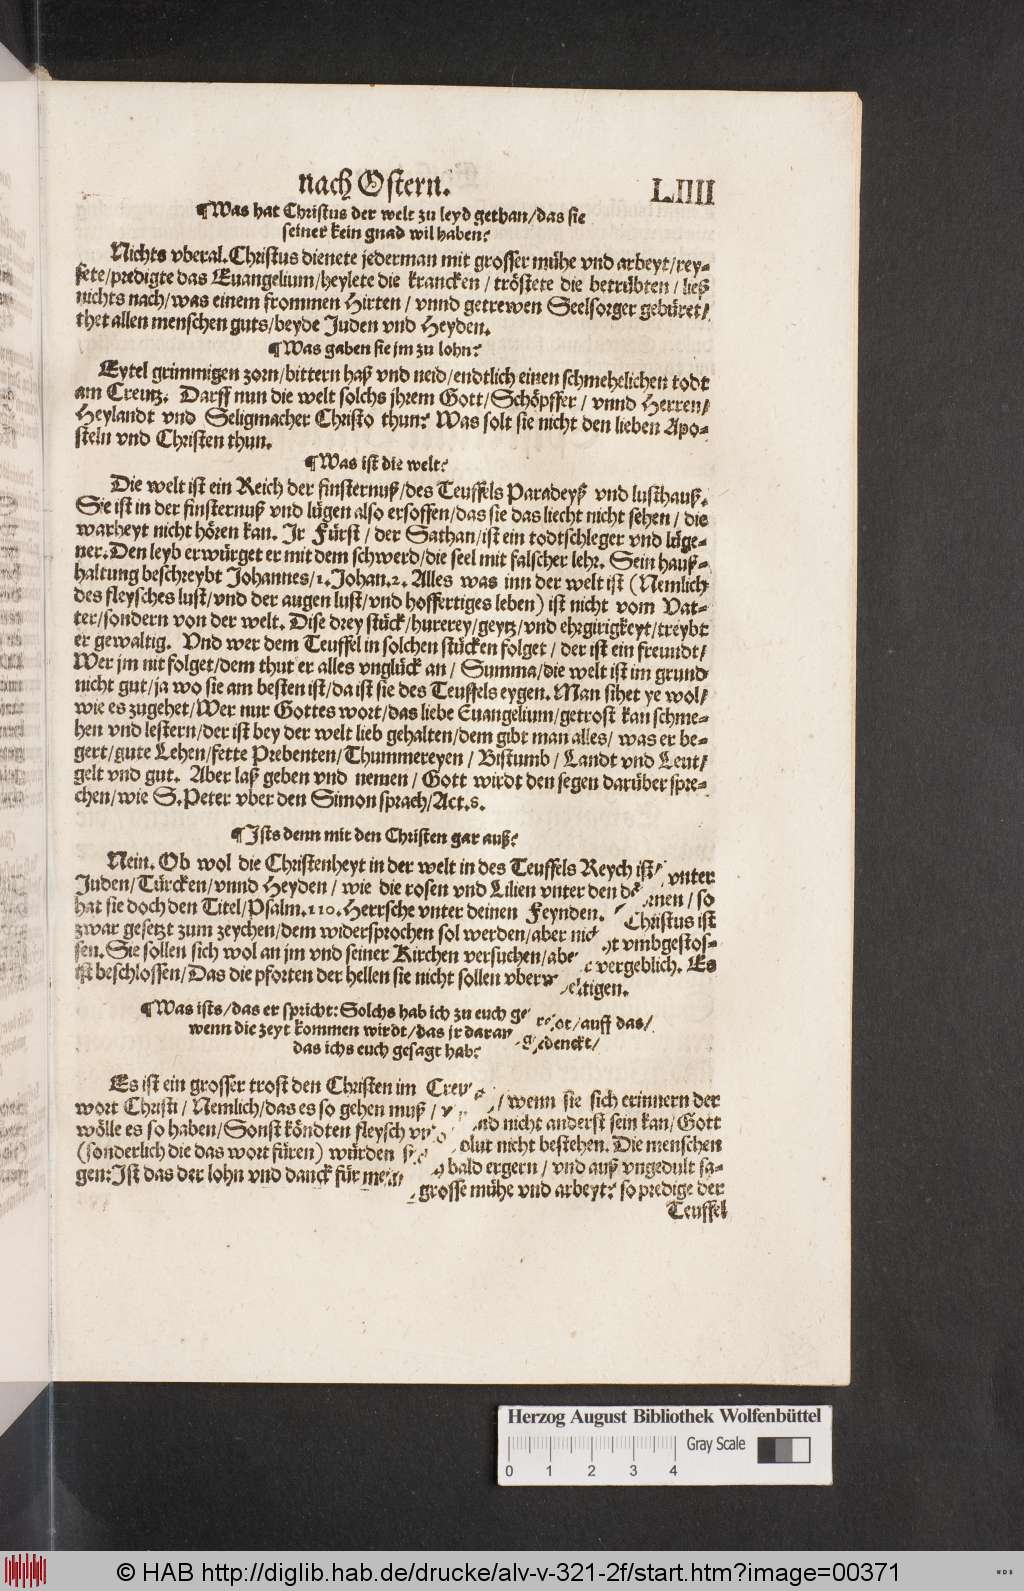 nach Ostern. LIIII
¶Was hat Christus der welt zu leyd gethan/das sie
seiner kein gnad wil haben?
Nichts vberal. Christus dienete jederman mit grosser mühe vnd arbeyt/rey-
sete/predigte das Euangelium/heylete die krancken/tröstete die betrübten/ließ
nichts nach/was einem frommen Hirten/vnnd getrewen Seelsorger gebüret/
thet allen menschen guts/beyde Juden vnd Heyden.
¶Was gaben sie jm zu lohn?
Eytel grimmigen zorn/bittern haß vnd neid/endtlich einen schmehelichen todt
am Creutz. Darff nun die welt solchs jhrem Gott/Schöpffer/vnnd Herren/
Heylandt vnd Seligmacher Christo thun? Was solt sie nicht den lieben Apo-
steln vnd Christen thun.
¶Was ist die welt?
Die welt ist ein Reich der finsternuß/des Teuffels Paradeyß vnd lusthauß.
Sie ist in der finsternuß vnd lügen also ersoffen/das sie das liecht nicht sehen/die
warheyt nicht hören kan. Ir Fürst/der Sathan/ist ein todtschleger vnd lüge-
ner. Den leyb erwürget er mit dem schwerd/die seel mit falscher lehr. Sein hauß-
haltung beschreybt Johannes/1.Johan.2. Alles was inn der welt ist (Nemlich
des fleysches lust/vnd der augen lust/vnd hoffertiges leben) ist nicht vom Vat-
ter/sondern von der welt. Dise drey stück/hurerey/geytz/vnd ehrgirigkeyt/treybt
er gewaltig. Vnd wer dem Teuffel in solchen stücken folget/der ist ein freundt/
Wer jm nit folget/dem thut er alles vnglück an/Summa/die welt ist im grund
nicht gut/ja wo sie am besten ist/da ist sie des Teuffels eygen. Man sihet ye wol/
wie es zugehet/Wer nur Gottes wort/das liebe Euangelium/getrost kan schme-
hen vnd lestern/der ist bey der welt lieb gehalten/dem gibt man alles/was er be-
gert/gute Lehen/fette Prebenten/Thummereyen/Bistumb/Landt vnd Leut/
gelt vnd gut. Aber laß geben vnd nemen/Gott wirdt den segen darüber spre-
chen/wie S.Peter vber den Simon sprach/Act.8.
¶Ists denn mit den Christen gar auß?
Nein. Ob wol die Christenheyt in der welt in des Teuffels Reych ist/vnter
Juden/Türcken/vnnd Heyden/wie die rosen vnd Lilien vnter den dörnen/so
hat sie doch den Titel/Psalm.110. Herrsche vnter deinen Feynden. Christus ist
zwar gesetzt zum zeychen/dem widersprochen sol werden/aber nicht vmbgestos-
sen. Sie sollen sich wol an jm vnd seiner Kirchen versuchen/aber vergeblich. Es
ist beschlossen/Das die pforten der hellen sie nicht sollen vberweltigen.
¶Was ists/das er spricht: Solchs hab ich zu euch geredt/auff das/
wenn die zeyt kommen wirdt/das jr daran gedenckt/
das ichs euch gesagt hab?
Es ist ein grosser trost den Christen im Creutz/wenn sie sich erinnern der
wort Christi/Nemlich/das es so gehen muß/vnd nicht anderst sein kan/Gott
wölle es so haben/Sonst köndten fleysch vnd blut nicht bestehen. Die menschen
(sonderlich die das wort füren) würden sich bald ergern/vnd auß vngedult sa-
gen: Ist das der lohn vnd danck für meine grosse mühe vnd arbeyt? so predige der
Teuffel
Herzog August Bibliothek Wolfenbüttel
Gray Scale
0 1 2 3 4
© HAB http://diglib.hab.de/drucke/alv-v-321-2f/start.htm?image=00371